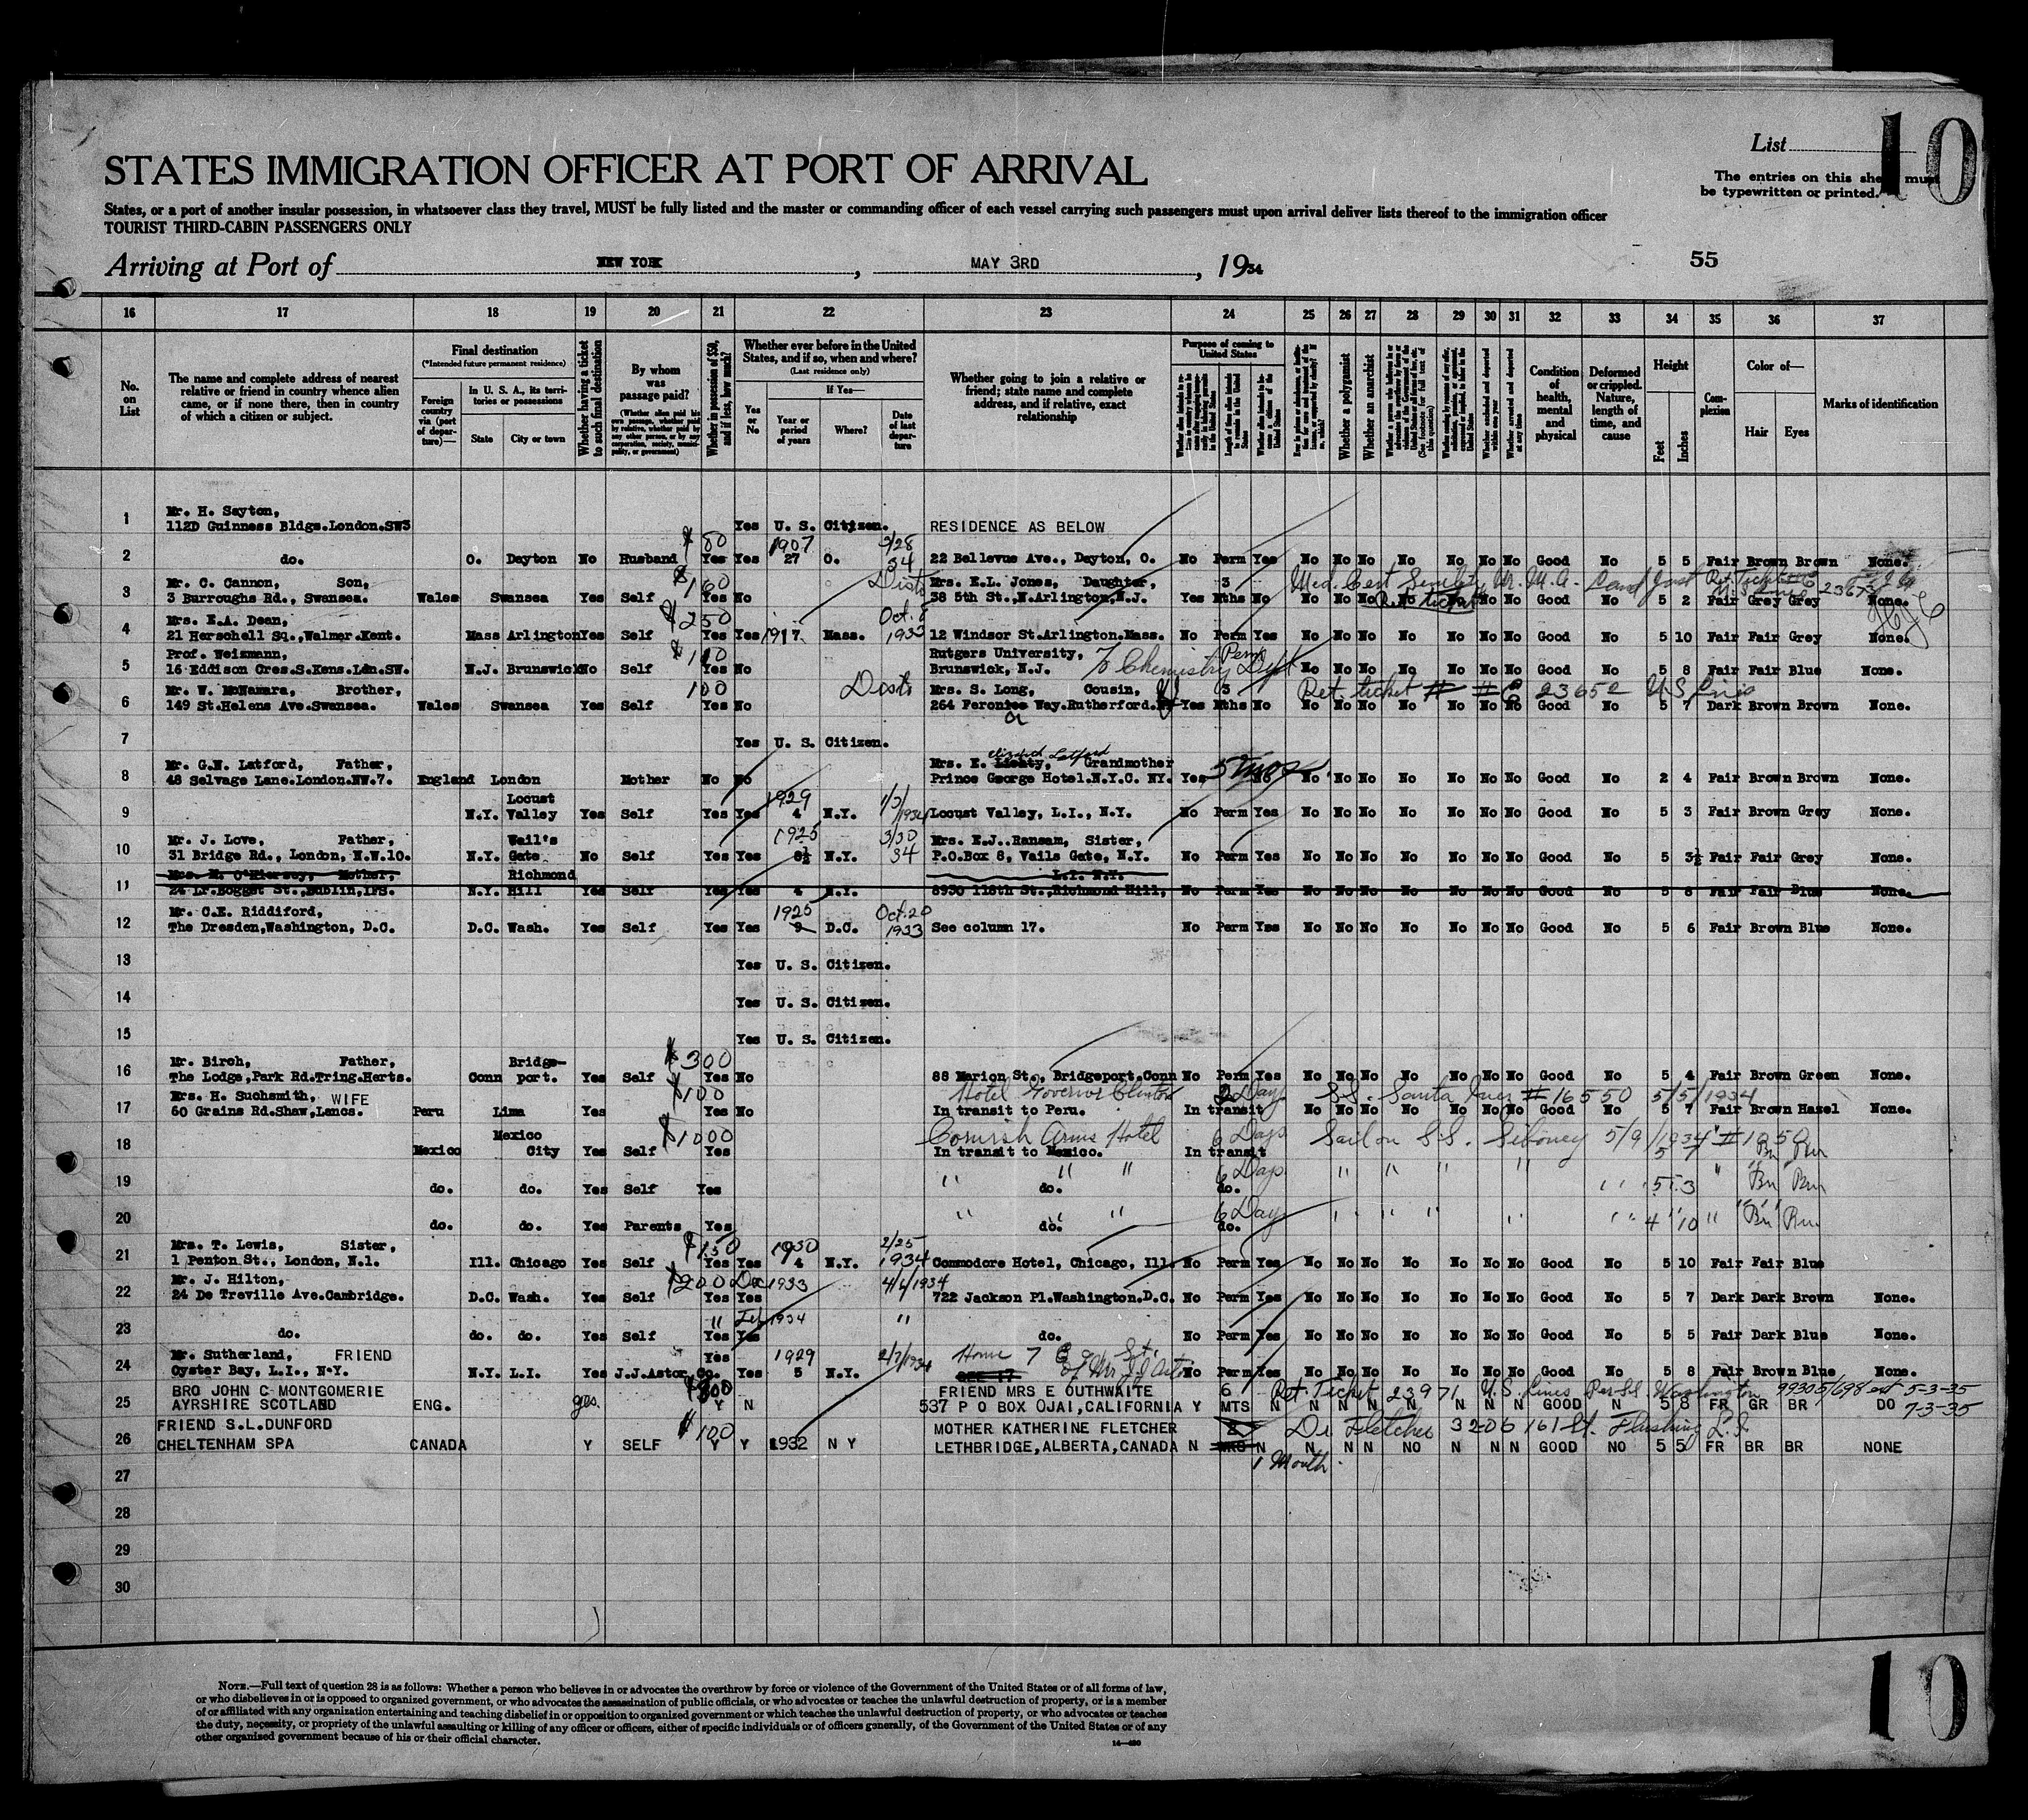 List 10
STATES IMMIGRATION OFFICER AT PORT OF ARRIVAL
The entries on this sheet must
be typewritten or printed.
States, or a port of another insular possession, in whatsoever class they travel, MUST be fully listed and the master or commanding officer of each vessel carrying such passengers must upon arrival deliver lists thereof to the immigration officer
TOURIST THIRD-CABIN PASSENGERS ONLY
Arriving at Port of NEW YORK, MAY 3RD, 1934
55
16 17 18 19 20 21 22 23 24 25 26 27 28 29 30 31 32 33 34 35 36 37
No. on List
The name and complete address of nearest relative or friend in country whence alien came, or if none there, then in country of which a citizen or subject.
Final destination
(*Intended future permanent residence)
Foreign country via (port of departure)—
In U. S. A., its territories or possessions
State
City or town
Whether having a ticket to such final destination
By whom was passage paid?
(Whether alien paid his own passage, whether paid by relative, whether paid by any other person, or by any corporation, society, municipality, or government)
Whether in possession of $50, and if less, how much?
Whether ever before in the United States, and if so, when and where?
(Last residence only)
Yes or No
If Yes—
Year or period of years
Where?
Date of last departure
Whether going to join a relative or friend; state name and complete address, and if relative, exact relationship
Purpose of coming to United States
Length of time alien intends to remain in the United States
Whether a polygamist
Whether an anarchist
(See footnote for full text of this question)
Whether excluded and deported within one year
Whether arrested and deported at any time
Condition of health, mental and physical
Deformed or crippled. Nature, length of time, and cause
Height
Feet
Inches
Complexion
Color of—
Hair
Eyes
Marks of identification
1 Mr. H. Sayton,
112D Guinness Bldgs.London.SW3 Yes U. S. Citizen. RESIDENCE AS BELOW
$ 80 1907 34
2 do. O. Dayton No Husband Yes Yes 27 O. 22 Bellevue Ave., Dayton, O. No Perm Yes No No No No No No No Good No 5 5 Fair Brown Brown None.
Mr. C. Cannon, Son, $160 Mrs. E.L. Jones, Daughter, 3 Med. Cert
3 3 Burroughs Rd., Swansea. Wales Swansea Yes Self Yes No 38 5th St.,N.Arlington,N.J. Yes Mths No No No No No No No No Good No 5 2 Fair Grey Grey None.
Mrs. E.A. Dean, $250 Ret ticket
4 21 Herschell Sq.,Walmer.Kent. Mass Arlington Yes Self Yes Yes 1917. Mass. 1933 12 Windsor St.Arlington.Mass. No Perm Yes No No No No No No No Good No 5 10 Fair Fair Grey None.
Prof. Weizmann, $ Rutgers University, To Chemistry Dept Perm
5 16 Eddison Cres.S.Kens.Lon.SW. N.J. Brunswick No Self Yes No Brunswick, N.J. No No No No No No No Good No 5 8 Fair Fair Blue None.
Mr. W. McNamara, Brother, 100 Mrs. S. Long, Cousin, 3 Ret. ticket # 23652 U S Lines
6 149 St.Helens Ave.Swansea. Wales Swansea Yes Self Yes No 264 Way.Rutherford. Yes Mths No No No No No No No No Good No 5 7 Dark Brown Brown None.
7 Yes U. S. Citizen.
Mr. G.N. Latford, Father, Mrs. E. Latford Grandmother
8 48 Selvage Lane.London.NW.7. England London Mother No No Prince George Hotel.N.Y.C. NY. Yes 5 mos No No No No No No No No Good No 2 4 Fair Brown Brown None.
Locust 1929
9 N.Y. Valley Yes Self Yes Yes 4 N.Y. Locust Valley, L.I., N.Y. No Perm Yes No No No No No No No Good No 5 3 Fair Brown Grey None.
Mr. J. Love, Father, Vail's 1925 3/30 Mrs. E.J. Ransam, Sister,
10 31 Bridge Rd., London, N.W.10. N.Y. Gate No Self Yes Yes 8½ N.Y. 34 P.O.Box 8, Vails Gate, N.Y. No Perm Yes No No No No No No No Good No 5 3½ Fair Fair Grey None.
Mother, Richmond L.I. N.Y.
11 24 Lr.Bogget St.,Dublin,IFS. N.Y. Hill Yes Self Yes Yes 4 N.Y. 8930 118th St.,Richmond Hill, No Perm Yes No No No No No No No Good No 5 8 Fair Fair Blue None.
Mr. C.E. Riddiford, 1925 Oct.20
12 The Dresden,Washington, D.C. D.C. Wash. Yes Self Yes Yes 9 D.C. 1933 See column 17. No Perm Yes No No No No No No No Good No 5 6 Fair Brown Blue None.
13 Yes U. S. Citizen.
14 Yes U. S. Citizen.
15 Yes U. S. Citizen.
Mr. Birch, Father, Bridge- $300
16 The Lodge,Park Rd.Tring.Herts. Conn port. Yes Self Yes No 88 Marion St., Bridgeport.Conn No Perm Yes No No No No No No No Good No 5 4 Fair Brown Green None.
Mrs. H. Suchsmith, WIFE $100 Hotel Governor Clinton 2 Days S.S. Santa Inez #16550 5/5/1934
17 60 Grains Rd.Shaw,Lancs. Peru Lima Yes Yes No In transit to Peru. In transit No No No No No No No Good No 5 7 Fair Brown Hazel None.
Mexico $1000 Cornish Arms Hotel 6 Days Sail on S.S. Siboney 5/9/1934 #1050
18 Mexico City Yes Self Yes In transit to Mexico. In transit 5 7 Bn Brn
19 do. do. Yes Self Yes " " " do. 6 Days do. " " " " 5 3 " Bn Brn
20 do. do. Yes Parents Yes " " " do. 6 Days do. " " " " 4 10 " Bn Brn
Mrs. T. Lewis, Sister, $150 1930 2/25
21 1 Penton St., London, N.1. Ill. Chicago Yes Self Yes Yes 4 N.Y. 1934 Commodore Hotel, Chicago, Ill. No Perm Yes No No No No No No No Good No 5 10 Fair Fair Blue
Mr. J. Hilton, $200 Dec 1933 4/6/1934
22 24 De Treville Ave.Cambridge. D.C. Wash. Yes Self Yes Yes 722 Jackson Pl.Washington.D.C. No Perm Yes No No No No No No No Good No 5 7 Dark Dark Brown None.
" Feb 1934 "
23 do. do. do. Yes Self Yes Yes do. No Perm Yes No No No No No No No Good No 5 5 Fair Dark Blue None.
Mr. Sutherland, FRIEND Yes 1929 2/7/1934 Home
24 Oyster Bay, L.I., N.Y. N.Y. L.I. Yes J.J.Astor Co. Yes 5 N.Y. SEE 17 of Mr JJ Astor No Perm Yes No No No No No No No Good No 5 8 Fair Brown Blue None.
BRO JOHN C MONTGOMERIE FRIEND MRS E OUTHWAITE 6 Ret. Ticket 23971 U.S. Lines Per SS. Washington 5-3-35
25 AYRSHIRE SCOTLAND ENG. yes Y N 537 P O BOX OJAI,CALIFORNIA Y MTS N N N N N N N GOOD N 5 8 FR GR BR DO 7-3-35
FRIEND S.L.DUNFORD $100 MOTHER KATHERINE FLETCHER Dr Fletcher 3206 161 St. Flushing L.I.
26 CHELTENHAM SPA CANADA Y SELF Y Y 1932 N Y LETHBRIDGE,ALBERTA,CANADA N N N N N NO N N N GOOD NO 5 5 FR BR BR NONE
27 1 Month
28
29
30
NOTE.—Full text of question 28 is as follows: Whether a person who believes in or advocates the overthrow by force or violence of the Government of the United States or of all forms of law,
or who disbelieves in or is opposed to organized government, or who advocates the assassination of public officials, or who advocates or teaches the unlawful destruction of property, or is a member
of or affiliated with any organization entertaining and teaching disbelief in or opposition to organized government or which teaches the unlawful destruction of property, or who advocates or teaches
the duty, necessity, or propriety of the unlawful assaulting or killing of any officer or officers, either of specific individuals or of officers generally, of the Government of the United States or of any
other organized government because of his or their official character.
10